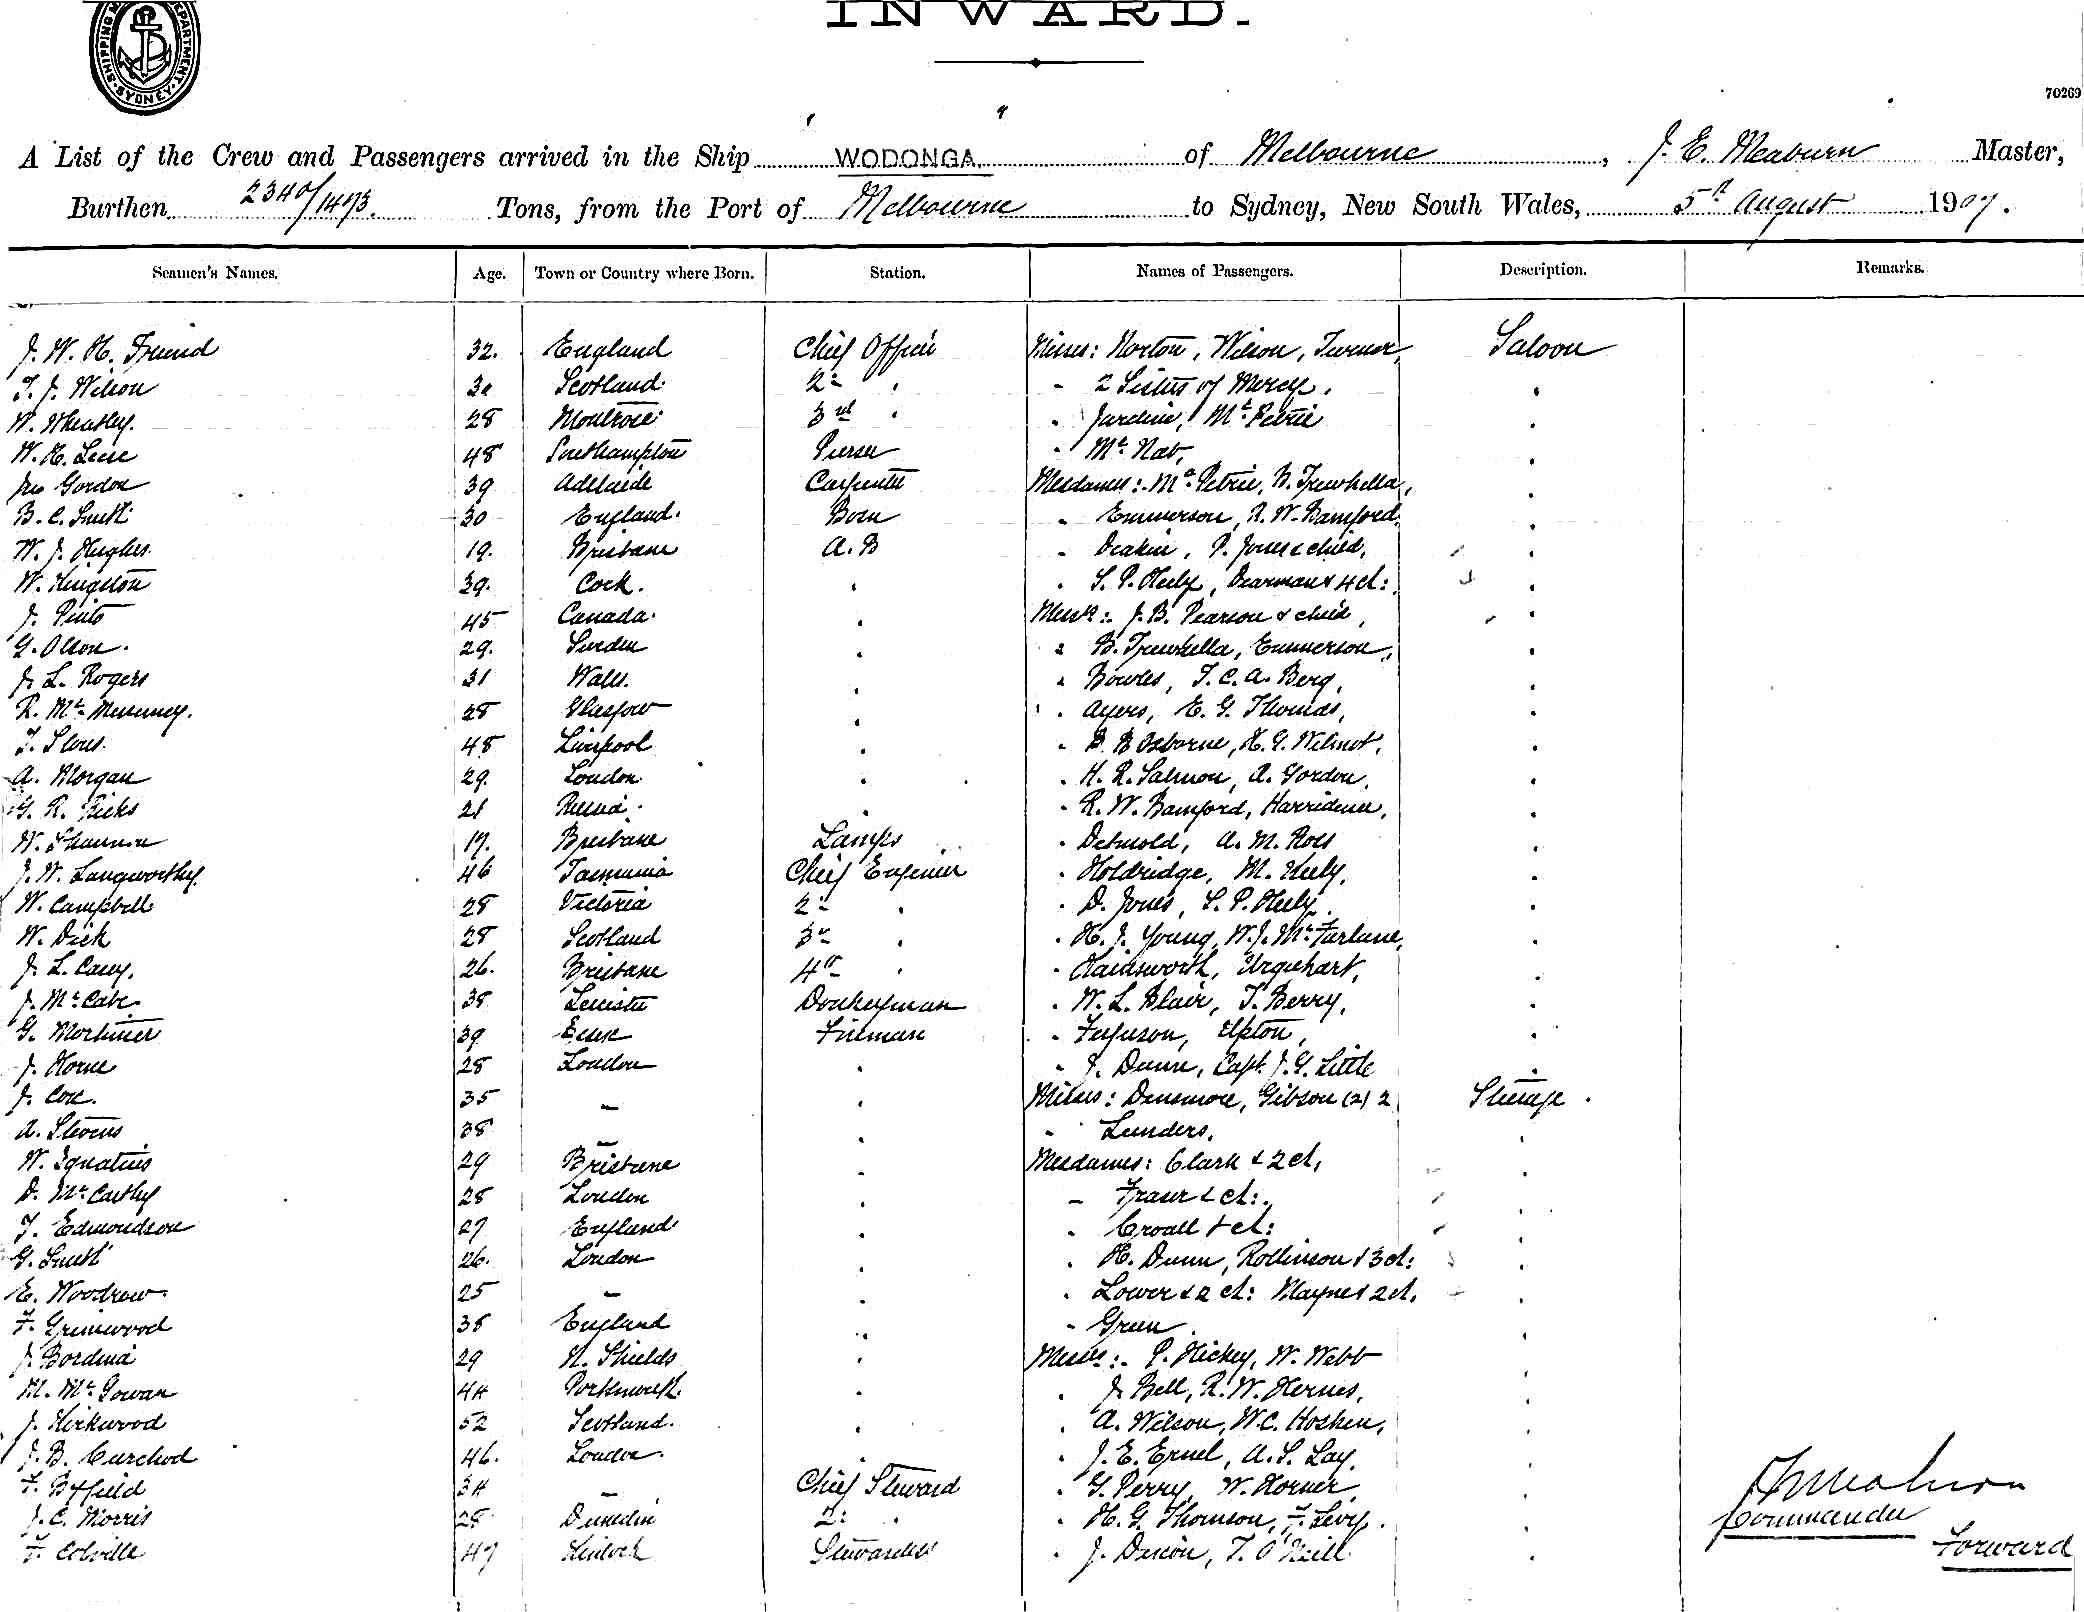 INWARD.
SHIPPING DEPARTMENT SYDNEY
70269
A List of the Crew and Passengers arrived in the Ship "WODONGA" of Melbourne, J. E. Meaburn Master,
Burthen 2340/1493 Tons, from the Port of Melbourne to Sydney, New South Wales, 5th August 1907.
Seamen's Names. Age. Town or Country where Born. Station. Names of Passengers. Description. Remarks.
J. W. H. Friend 32. England Chief Officer Misses: Norton, Wilson, Turner, Saloon
T. J. Wilson 30 Scotland 2nd " - 2 Sisters of Mercy.
W. Wheatley. 28 Montrose 3rd " " Jardine, McPetrie
W. H. 48 Southampton Purser " McNab,
Jno Gordon 39 Adelaide Carpenter Mesdames: McPetrie, B. Trewhella,
B. C. Smith 30 England. Bosn " Emmerson, R. W. Bamford.
W. J. Hughes. 19. Brisbane A.B " Deakin, P. Jones & child,
W. Kingston 39. Cork. " S. P. Heely, Dearman & 4 ch:
J. Pinto 45 Canada. Messrs: J. B. Pearson & child,
G. Olson. 29. Sweden " B. Trewhella, Emmerson,
J. L. Rogers 31 Wales. " Bowles, T. C. A. Berg,
R. Mc 28 Glasgow " Ayers, E. G. Thomas,
T. 48 Liverpool " Osborne, H. G. Wilmot,
A. Morgan 29. London " H. R. Salmon, A. Gordon,
G. R. Ricks 21 Russia. " R. W. Bamford, Harridene,
W. Shannon 19. Brisbane Lamps " Detmold, A. M. Ross
J. W. Langworthy. 46 Tasmania Chief Engineer " Holdridge, M. Heely,
W. Campbell 28 Victoria 2nd " " D. Jones, S. P. Heely
W. Dick 28 Scotland 3rd " " H. J. Young, W. J. McFarlane,
J. L. Carey. 26. Brisbane 4th " " Hainsworth, Urquhart,
J. McCabe 38 Leinster Donkeyman " W. L. Blair, T. Berry,
G. Mortimer 39 Essex Fireman " Ferguson, Upton,
J. Horne 28 London " J. Dunn, Capt. J. G. Little
J. Cox. 35 - Misses: Densmore, Gibson (2) 2 Steerage
A. Stevens 38 - " Lunders,
W. Ignatius 29 Brisbane Mesdames: Clark & 2 ch,
D. McCarthy 28 London - Fraser & ch:
T. Edmondson 27 England " Croall & ch:
G. Smith 26. London " H. Dunn, Rollinson & 3 ch:
E. Woodrow 25 - " Lower & 2 ch: Mayne & 2 ch.
F. Grimwood 38 England " Green
J. Bordina 29 N. Shields Messrs: P. Hickey, W. Webb
M. McGowan 44 Portsmouth. " J. Bell, R. W. Hernes,
J. Kirkwood 52 Scotland. " A. Wilson, W. C. Hosken,
J. B. Curchod 46. London. " J. E. Ernel, A. S. Lay,
F. Byfield 34 - Chief Steward " G. Perry, W. Horner,
J. C. Morris 28 Dunedin 2nd " " H. G. Thomson, F. Levy.
F. Colville 47 Stewardess " J. Dixon, T. O'Neill.
Commander
Forward